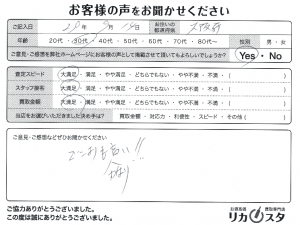 お客様の声をお聞かせください
ご記入日 年 月 日 お住いの都道府県 大阪府
年齢 20代・30代・40代・50代・60代・70代・80代〜 性別 男・女
ご意見・ご感想を弊社ホームページにお客様の声として掲載させて頂いてもよろしいでしょうか? Yes・No
査定スピード 大満足・満足・やや満足・どちらでもない・やや不満・不満
スタッフ接客 大満足・満足・やや満足・どちらでもない・やや不満・不満
買取金額 大満足・満足・やや満足・どちらでもない・やや不満・不満
当店をお選びいただきました決め手は? 買取金額・対応力・利便性・スピード・その他( )
ご意見・ご感想などぜひお聞かせください
ご協力ありがとうございました。
この度は誠にありがとうございました。
お酒高価買取専門店
リカスタ